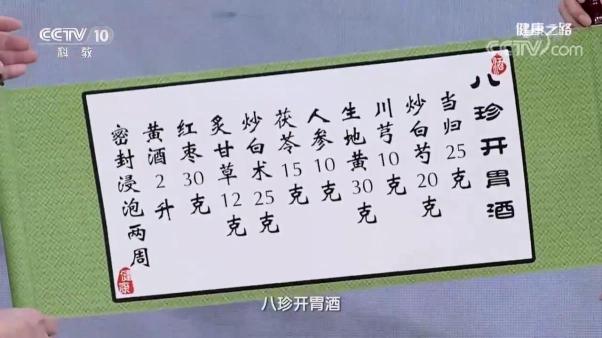 CCTV 10
科教
健康之路
CCTV.com
八珍开胃酒
当归25克
炒白芍20克
川芎10克
生地黄30克
人参10克
茯苓15克
炒白术25克
炙甘草12克
红枣30克
黄酒2升
密封浸泡两周
健康
八珍开胃酒